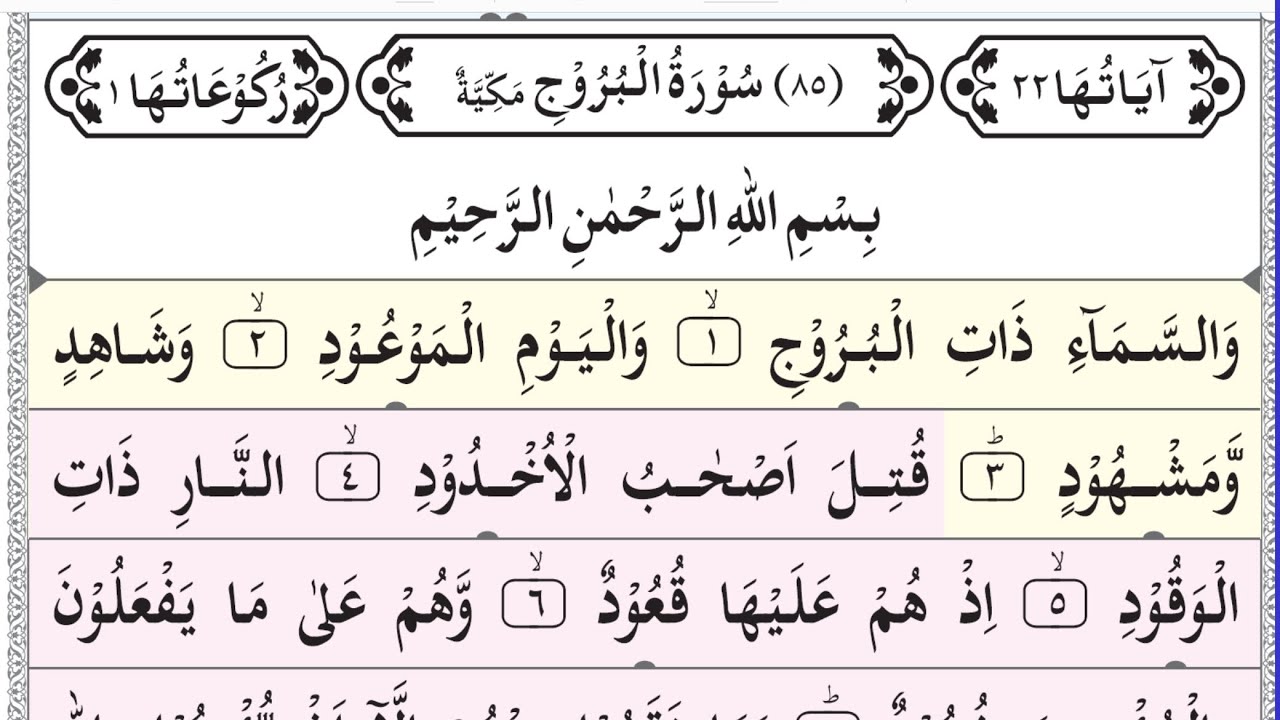 آيَاتُهَا ٢٢ (٨٥) سُوْرَةُ الْبُرُوْجِ مَكِّيَّةٌ رُكُوْعَاتُهَا ١
بِسْمِ اللهِ الرَّحْمٰنِ الرَّحِيْمِ
وَالسَّمَآءِ ذَاتِ الْبُرُوْجِ ۙ ١ وَالْيَوْمِ الْمَوْعُوْدِ ۙ ٢ وَشَاهِدٍ
وَّمَشْهُوْدٍ ؕ ٣ قُتِلَ اَصْحٰبُ الْاُخْدُوْدِ ۙ ٤ النَّارِ ذَاتِ
الْوَقُوْدِ ۙ ٥ اِذْ هُمْ عَلَيْهَا قُعُوْدٌ ۙ ٦ وَّهُمْ عَلٰى مَا يَفْعَلُوْنَ